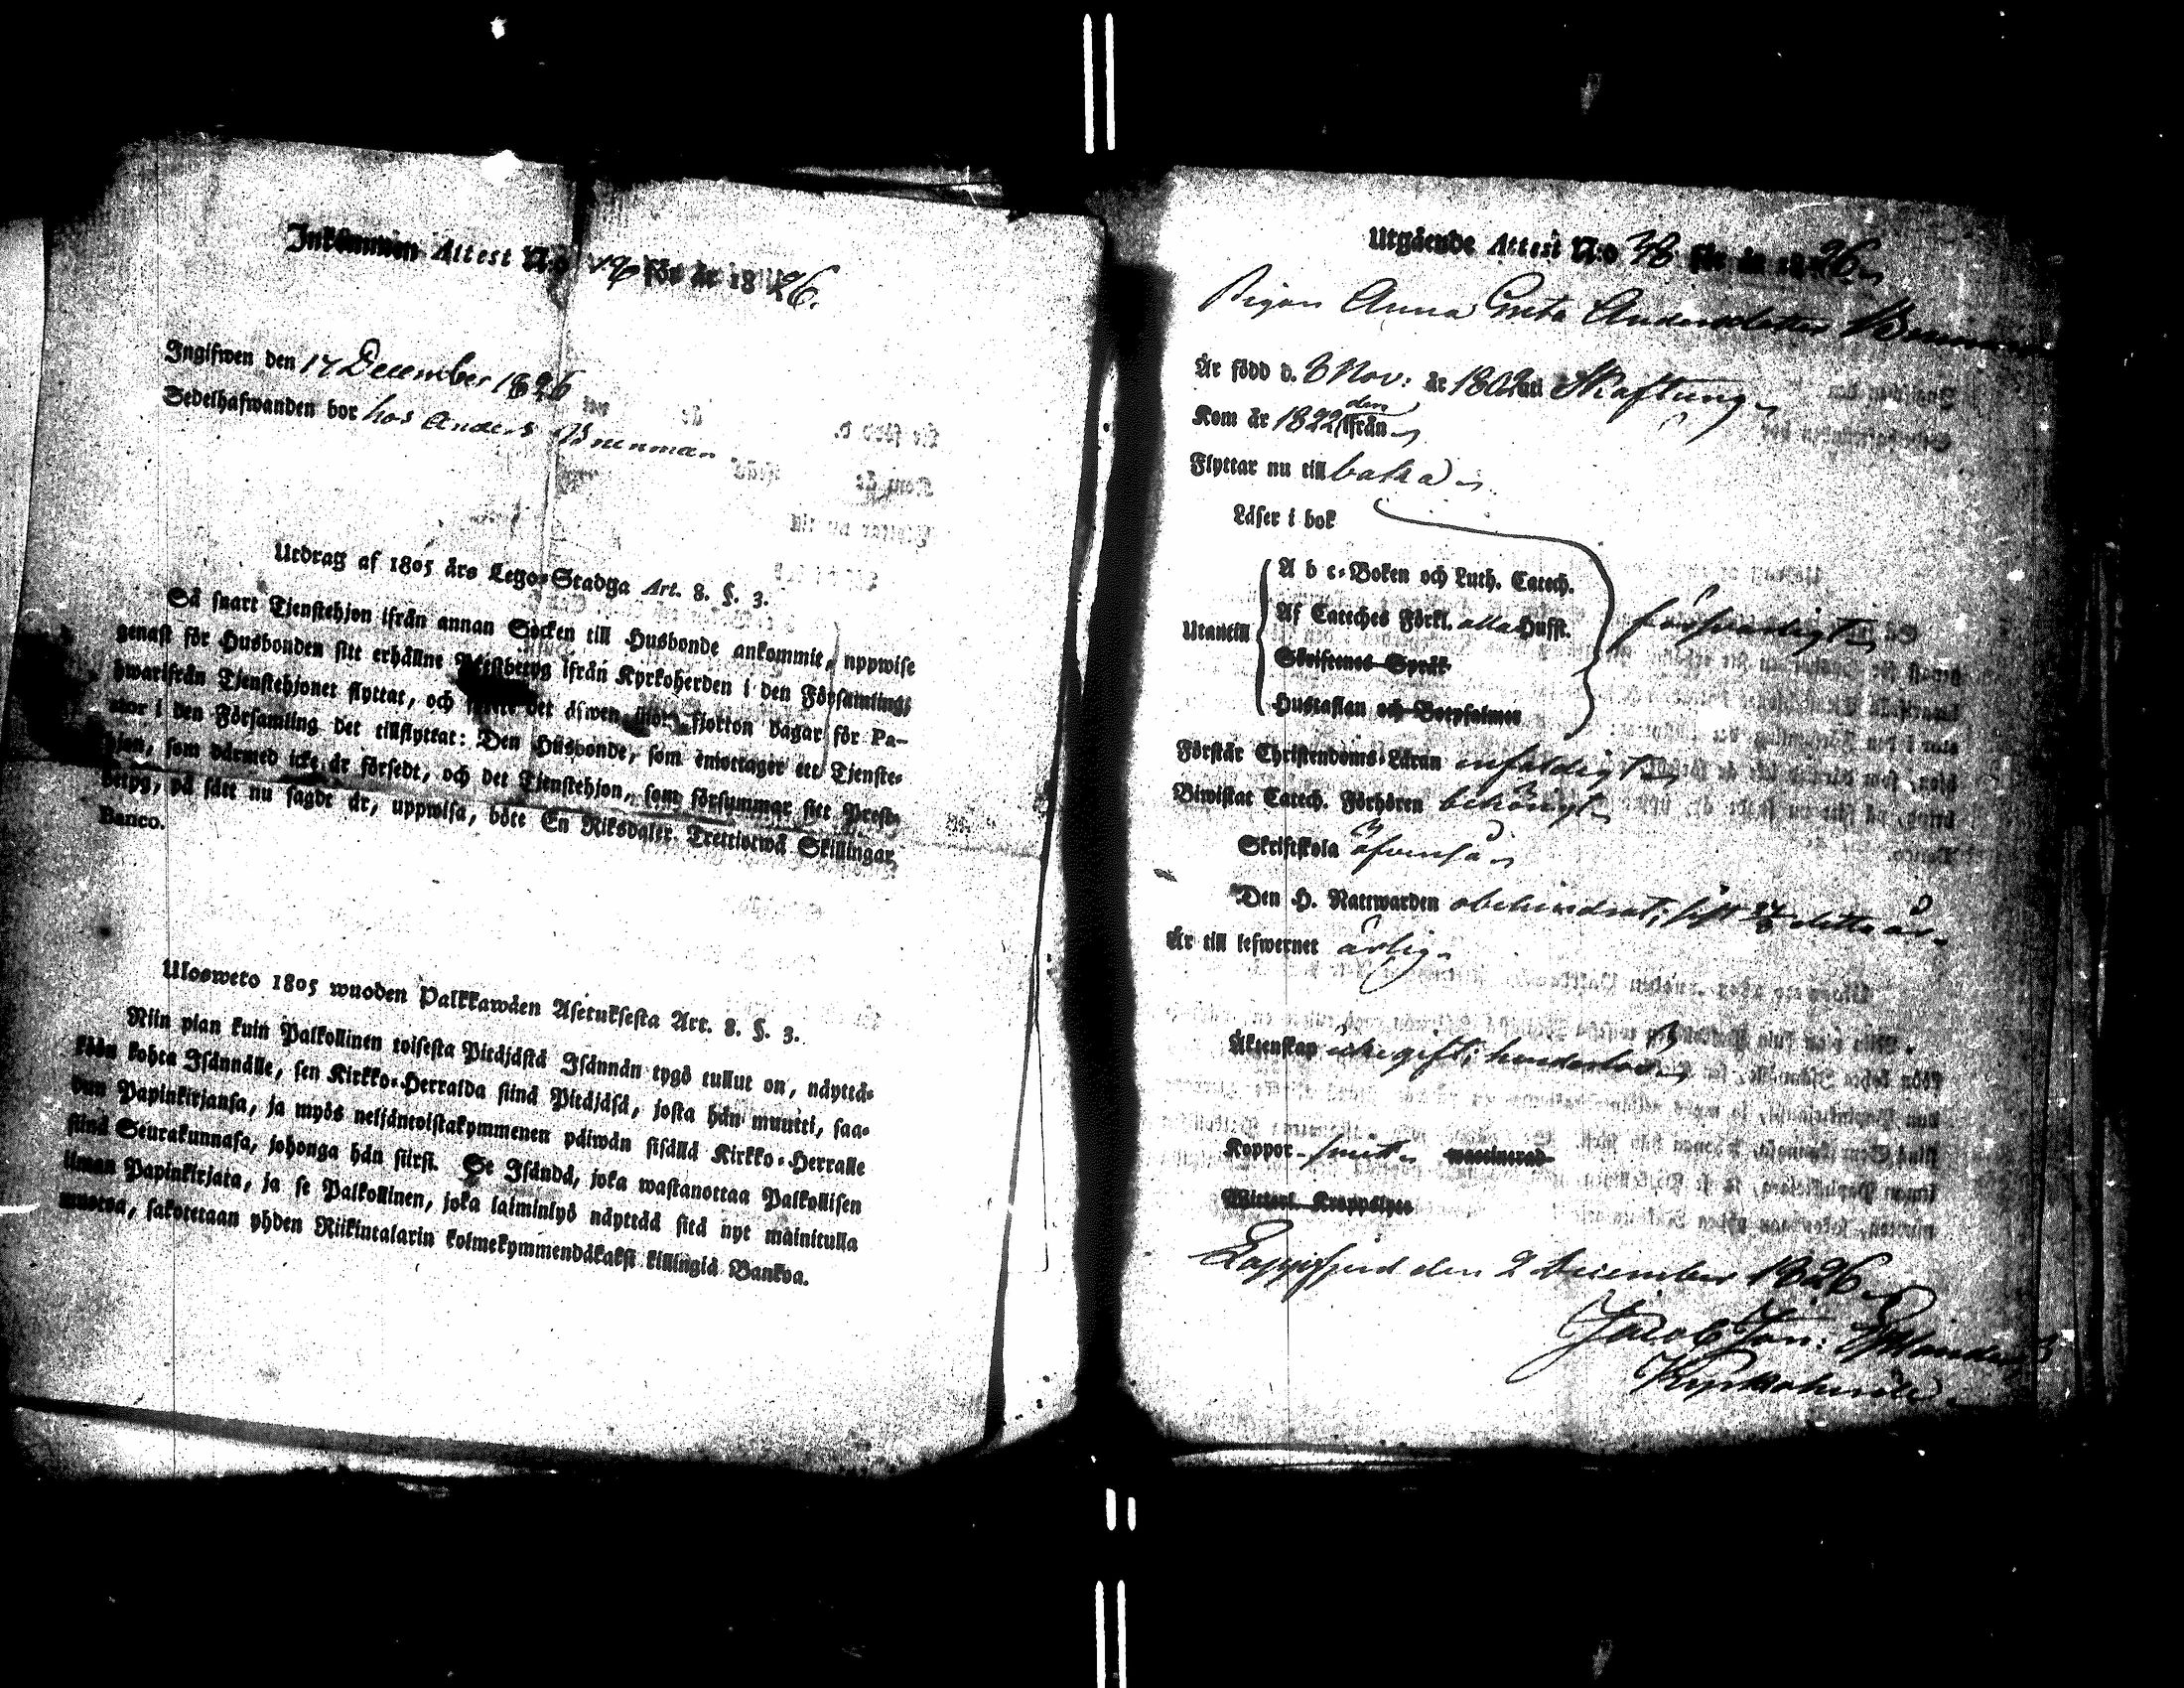 Inkommen Attest N:o 196 för år 1826.
Ingifwen den 17 December 1826
Sedelhafwanden bor hos Anders Brenman
Utdrag af 1805 års Lego-Stadga Art. 8. §. 3.
Så snart Tjenstehjon ifrån annan Socken till Husbonde ankommit, uppwise
genast för Husbonden sitt erhållne Prestbetyg ifrån Kyrkoherden i den Församling,
hwarifrån Tjenstehjonet flyttat, och det äfwen inom fjorton dagar för Pa-
stor i den Församling det tillflyttat: Den Husbonde, som emottager ett Tjenste-
hjon, som därmed icke är försedt, och det Tjenstehjon, som försummar sitt Prest-
betyg, på sätt nu sagdt är, uppwisa, böte En Riksdaler Trettiotwå Skillingar
Banco.
Ulosweto 1805 wuoden Palkkawäen Asetuksesta Art. 8. §. 3.
Niin pian kuin Palkollinen toisesta Pitäjästä Isännän tygö tullut on, näyttä-
köön kohta Isännälle, sen Kirkko-Herralda siinä Pitäjäsä, josta hän muutti, saa-
dun Papinkirjansa, ja myös neljäntoistakymmenen päiwän sisällä Kirkko-Herralle
siinä Seurakunnasa, johonga hän siirsi. Se Isändä, joka wastanottaa Palkollisen
ilman Papinkirjata, ja se Palkollinen, joka laiminlyö näyttää sitä nyt mainitulla
muotoa, sakotetaan yhden Riikintalarin kolmekymmendäkaksi killingiä Bankoa.
Utgående Attest N:o 38 för år 1826
Pigan Anna Greta Andersdotter
Är född d. 3 Nov: år 1802 uti Skaftung
Kom år 1822 der ifrån
Flyttar nu till baka
Läser i bok
Utantill
A b c-Boken och Luth. Catech.
Af Cateches Förkl. alla Husst.
Skriftenes Språk
Hustaflan och Botpsalmer
försvarligt
Förstår Christendoms-Läran enfaldigt
Biwistat Catech. Förhören behörigt
Skriftskola äfvenså
Den H. Nattwarden obehindrat; detta år
Är till lefwernet ärlig
Äktenskap icke gift; hinderlös
Koppor haft vaccinerad
Lappfjerd den 2 December 1826
Jacob Jon: Estlander
Kyrkoherde